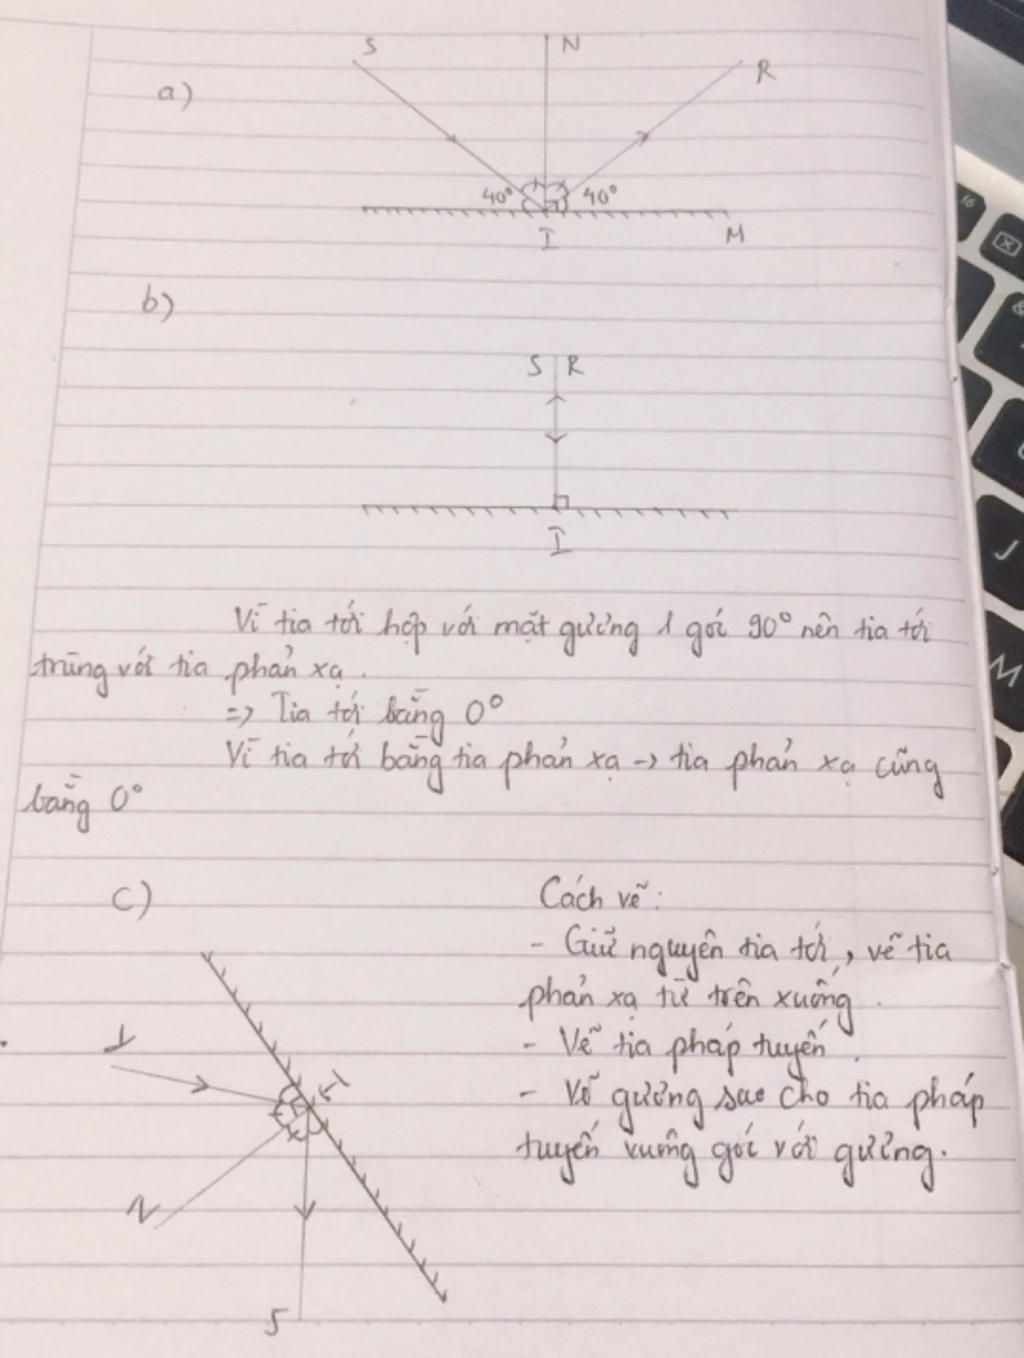 S N R
a)
40° 40°
I M
b)
S R
I
Vì tia tới hợp với mặt gương 1 góc 90° nên tia tới
trùng với tia phản xạ.
=> Tia tới bằng 0°
Vì tia tới bằng tia phản xạ -> tia phản xạ cũng
bằng 0°
c)
Cách vẽ:
- Giữ nguyên tia tới, vẽ tia
phản xạ từ trên xuống.
- Vẽ tia pháp tuyến.
- Vẽ gương sao cho tia pháp
tuyến vuông góc với gương.
I
N
S